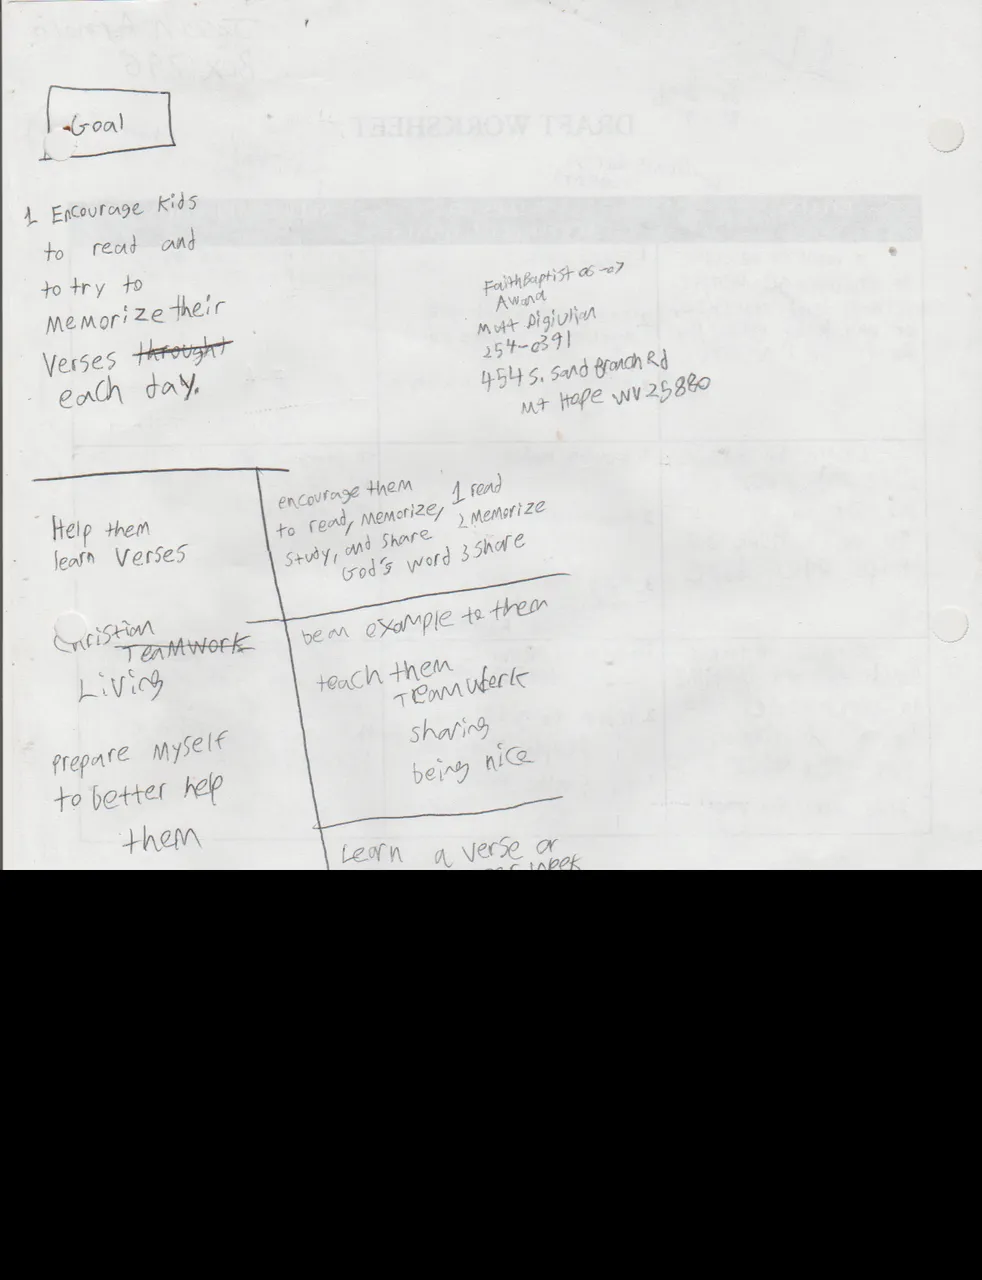 Goal
1 Encourage Kids
to read and
to try to
Memorize their
Verses throught
each day.
FaithBaptist 06-07
Awana
Matt Digiulian
254-0391
454 S. Sand Branch Rd
Mt Hope WV 25880
Help them
learn Verses
encourage them
to read, memorize, 1 read
Study, and share 2 Memorize
God's word 3 share
Christian
TEAMWORK
Living
be an example to them
teach them
Teamwork
sharing
being nice
prepare Myself
to better help
them
Learn a verse or
per week
DRAFT WORKSHEET